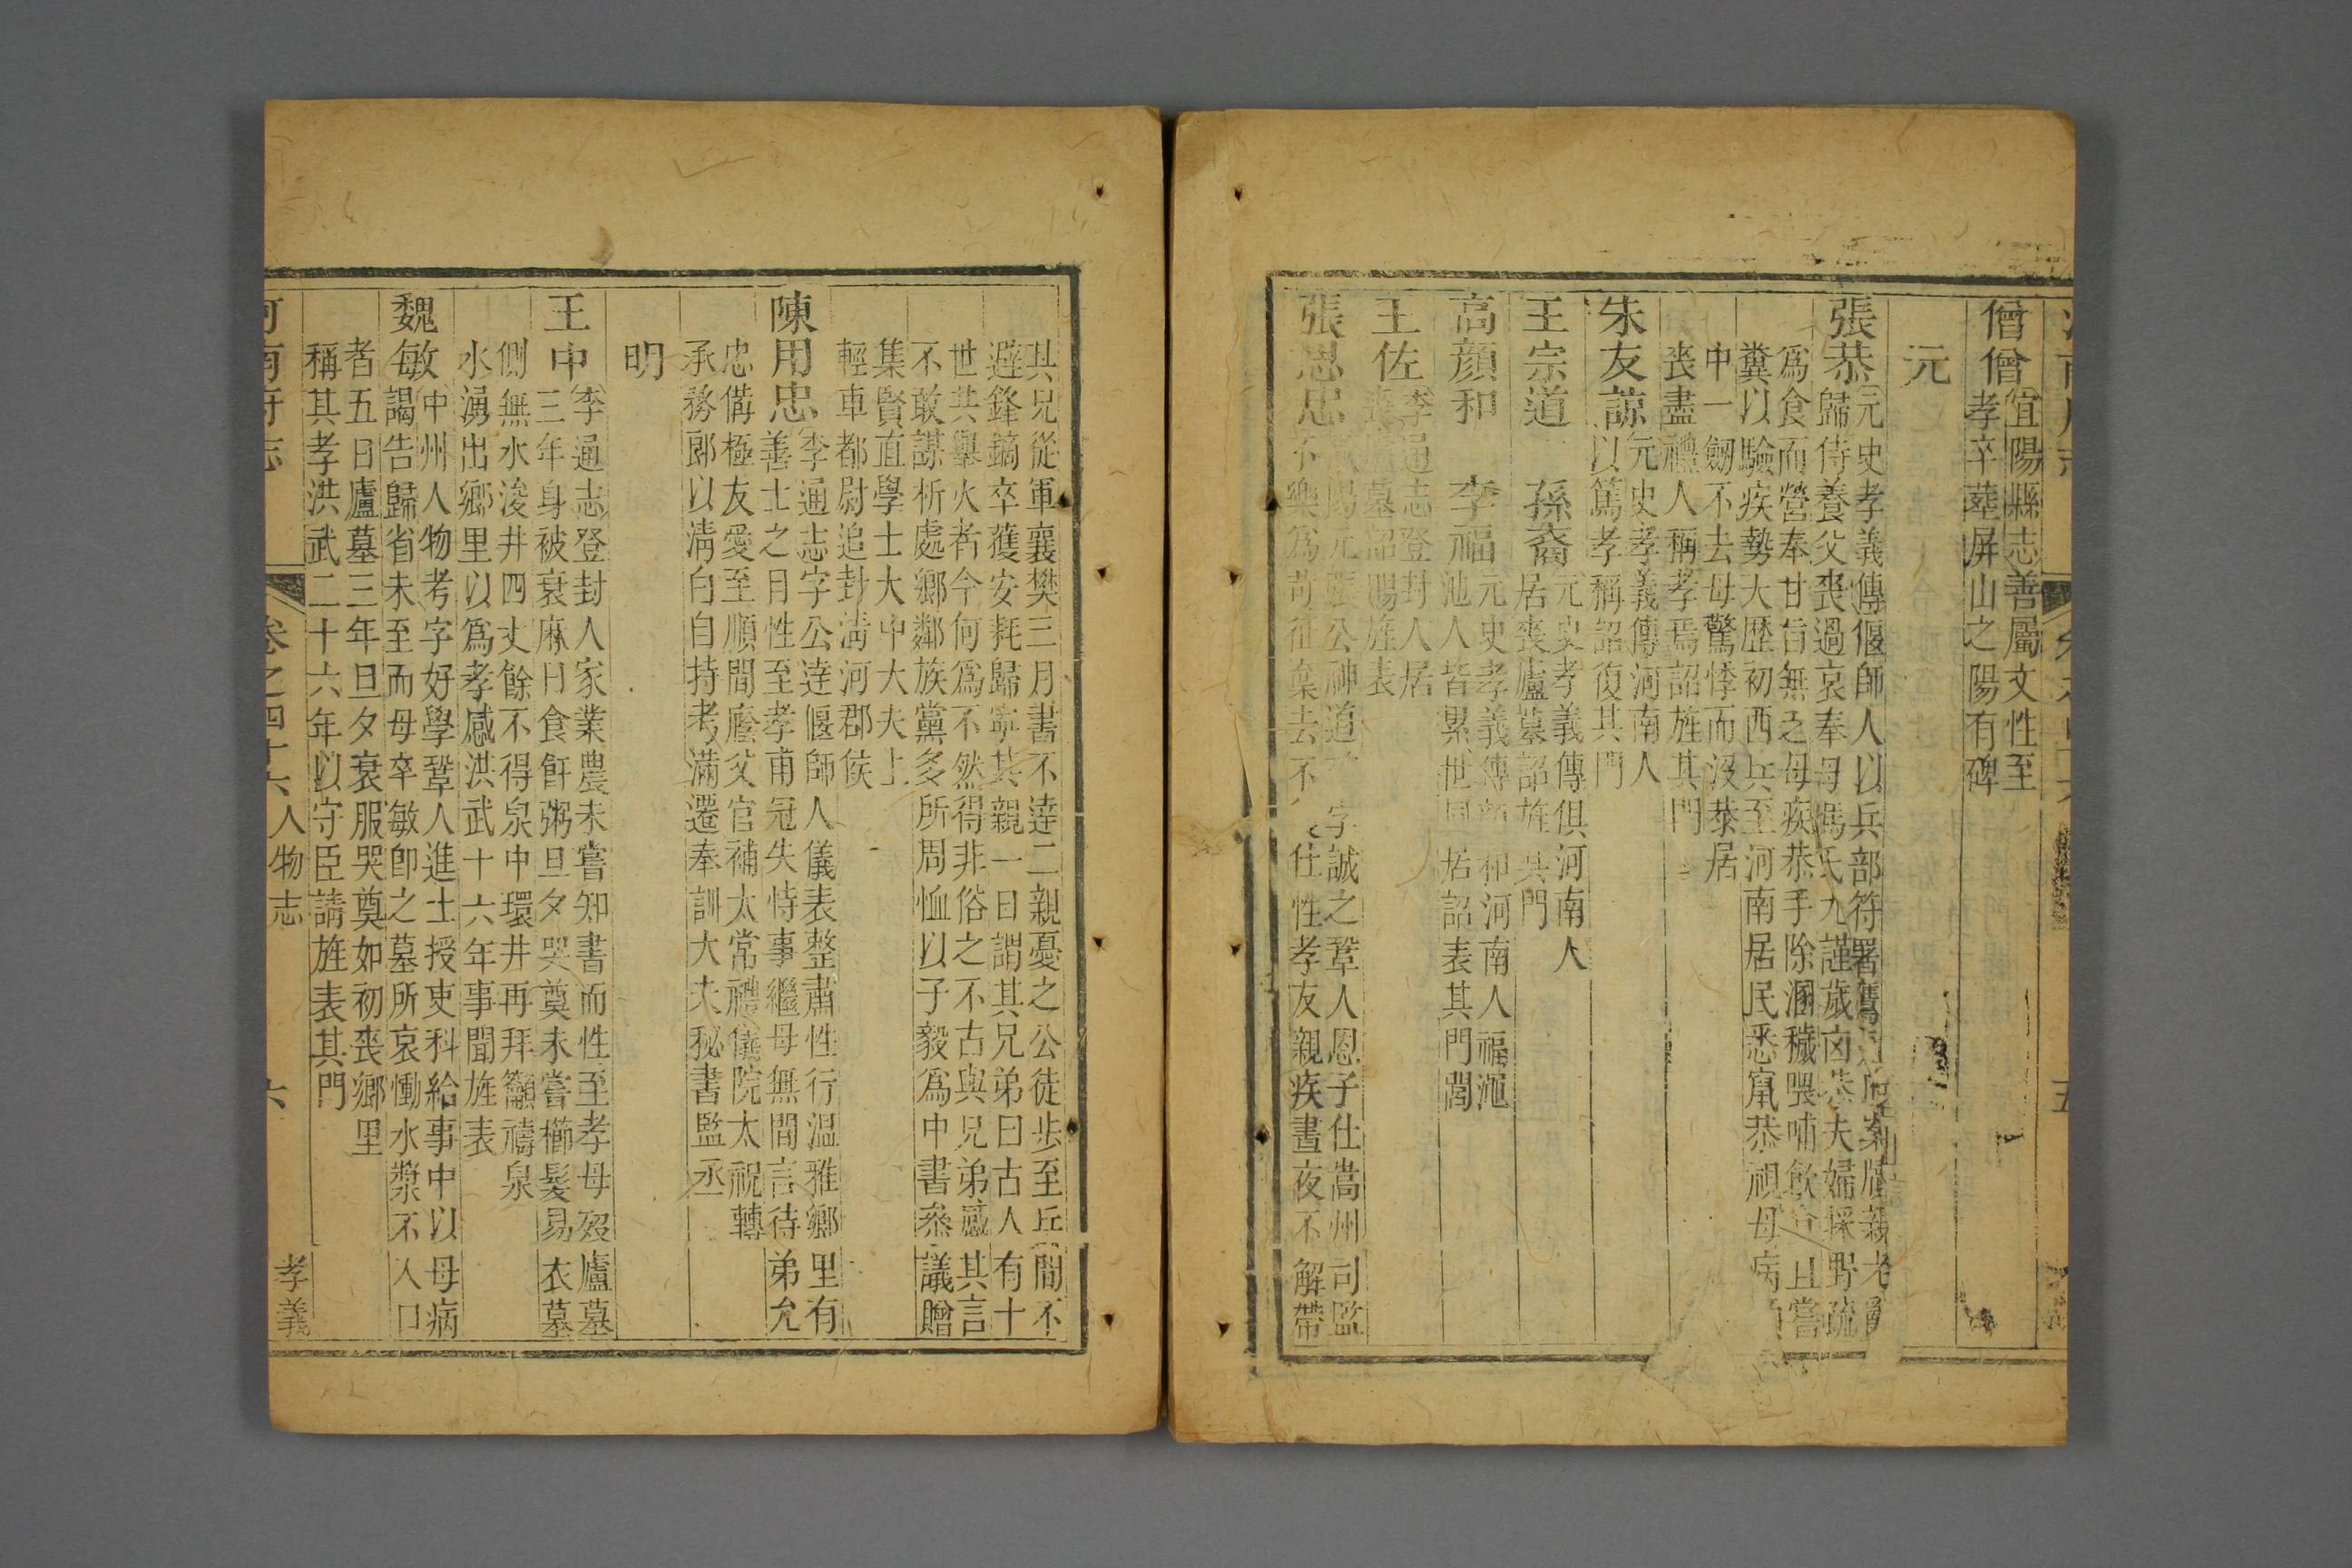 僧僧宜陽縣志善屬文性至
孝卒葬屏山之陽有碑
元
張恭元史孝義傳偃師人以兵部符署
歸侍養父喪過哀奉母馮氏九謹歲凶恭夫婦採野疏
為食而營奉甘旨無之母疾恭手除溷穢喂哺飲 且嘗
糞以驗疾勢大歷初西兵至河南居民悉竄恭視母病
中一劒不去母驚悸而沒恭居
喪盡禮人稱孝焉詔旌其門
朱友諒元史孝義傳河南人
以篤孝稱詔復其門
王宗道 孫裔元史孝義傳俱河南人
居喪廬墓詔旌其門
高顏和 李福元史孝義傳顏和河南人福澠
池人皆累世同居詔表其門閭
王佐李通志登封人居
喪廬墓詔賜旌表
張思忠 陽元張公神道 字誠之鞏人恩子仕嵩州司監
不樂為苛征棄去不 仕性孝友親疾晝夜不解帶
其兄從軍襄樊三月書不達二親憂之公徒步至兵間不
避鋒鏑卒獲安耗歸寧其親一日謂其兄弟曰古人有十
世共爨火者今何為不然得非俗之不古與兄弟感其言
不敢謀析處鄉鄰族黨多所周恤以子毅為中書叅議贈
集賢直學士大中大夫上
輕車都尉追封清河郡侯
陳用忠李通志字公達偃師人儀表整肅性行溫雅鄉里有
善士之目性至孝甫冠失恃事繼母無間言待弟允
忠備極友愛至順間廕父官補太常禮儀院太祝轉
承務郎以清白自持考滿遷奉訓大夫秘書監丞
明
王中李通志登封人家業農未嘗知書而性至孝母歿廬墓
三年身被衰麻日食飦粥旦夕哭奠未嘗櫛髮易衣墓
側無水浚井四丈餘不得泉中環井再拜籲禱泉
水湧出鄉里以為孝感洪武十六年事聞旌表
魏敏中州人物考字好學鞏人進士授吏科給事中以母病
謁告歸省未至而母卒敏卽之墓所哀慟水漿不入口
者五日廬墓三年旦夕衰服哭奠如初喪鄉里
稱其孝洪武二十六年以守臣請旌表其門
河南府志 卷之四十六人物志 六 孝義